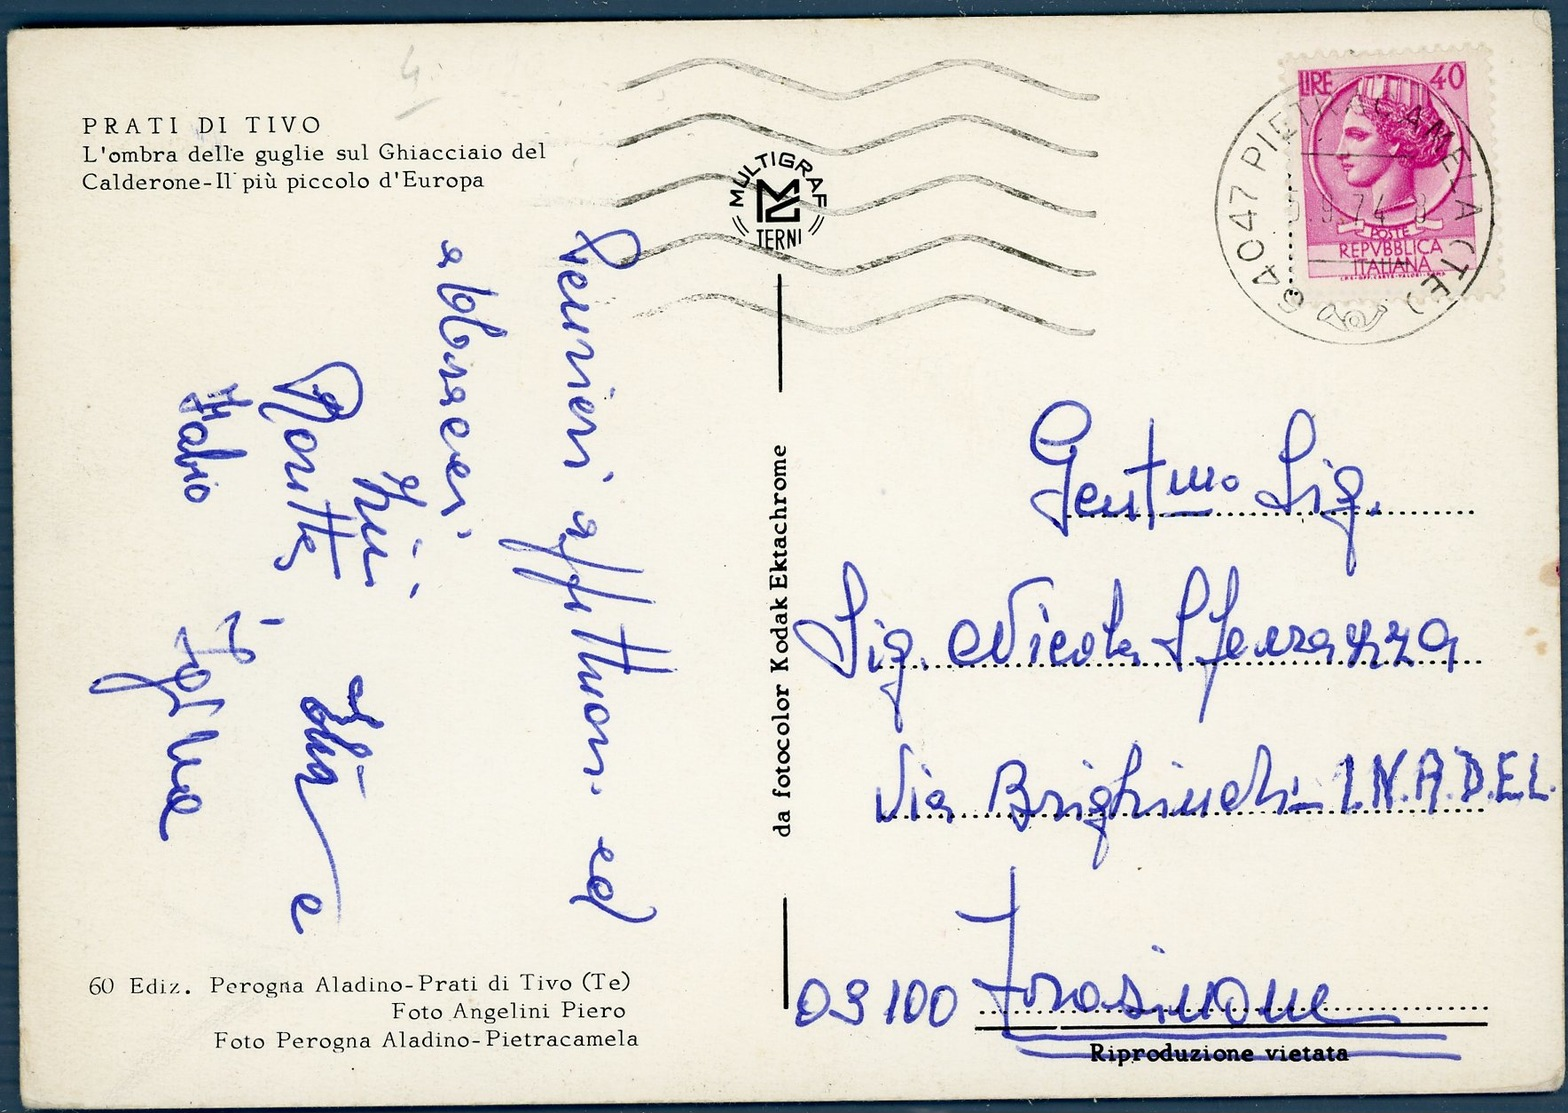 4
PRATI DI TIVO
L'ombra delle guglie sul Ghiacciaio del
Calderone-Il più piccolo d'Europa
MULTIGRAF
TERNI
LIRE 40
POSTE
REPVBBLICA
ITALIANA
64047 PIETRACAMELA (TE)
9.74
Pensieri affettuosi ed
abbracci
Fabio
da fotocolor Kodak Ektachrome
Gent.mo Sig.
Sig. Nicola Sferrazza
Via Brighindi - I.N.A.D.E.L.
03100 Frosinone
60 Ediz. Perogna Aladino-Prati di Tivo (Te)
Foto Angelini Piero
Foto Perogna Aladino-Pietracamela
Riproduzione vietata